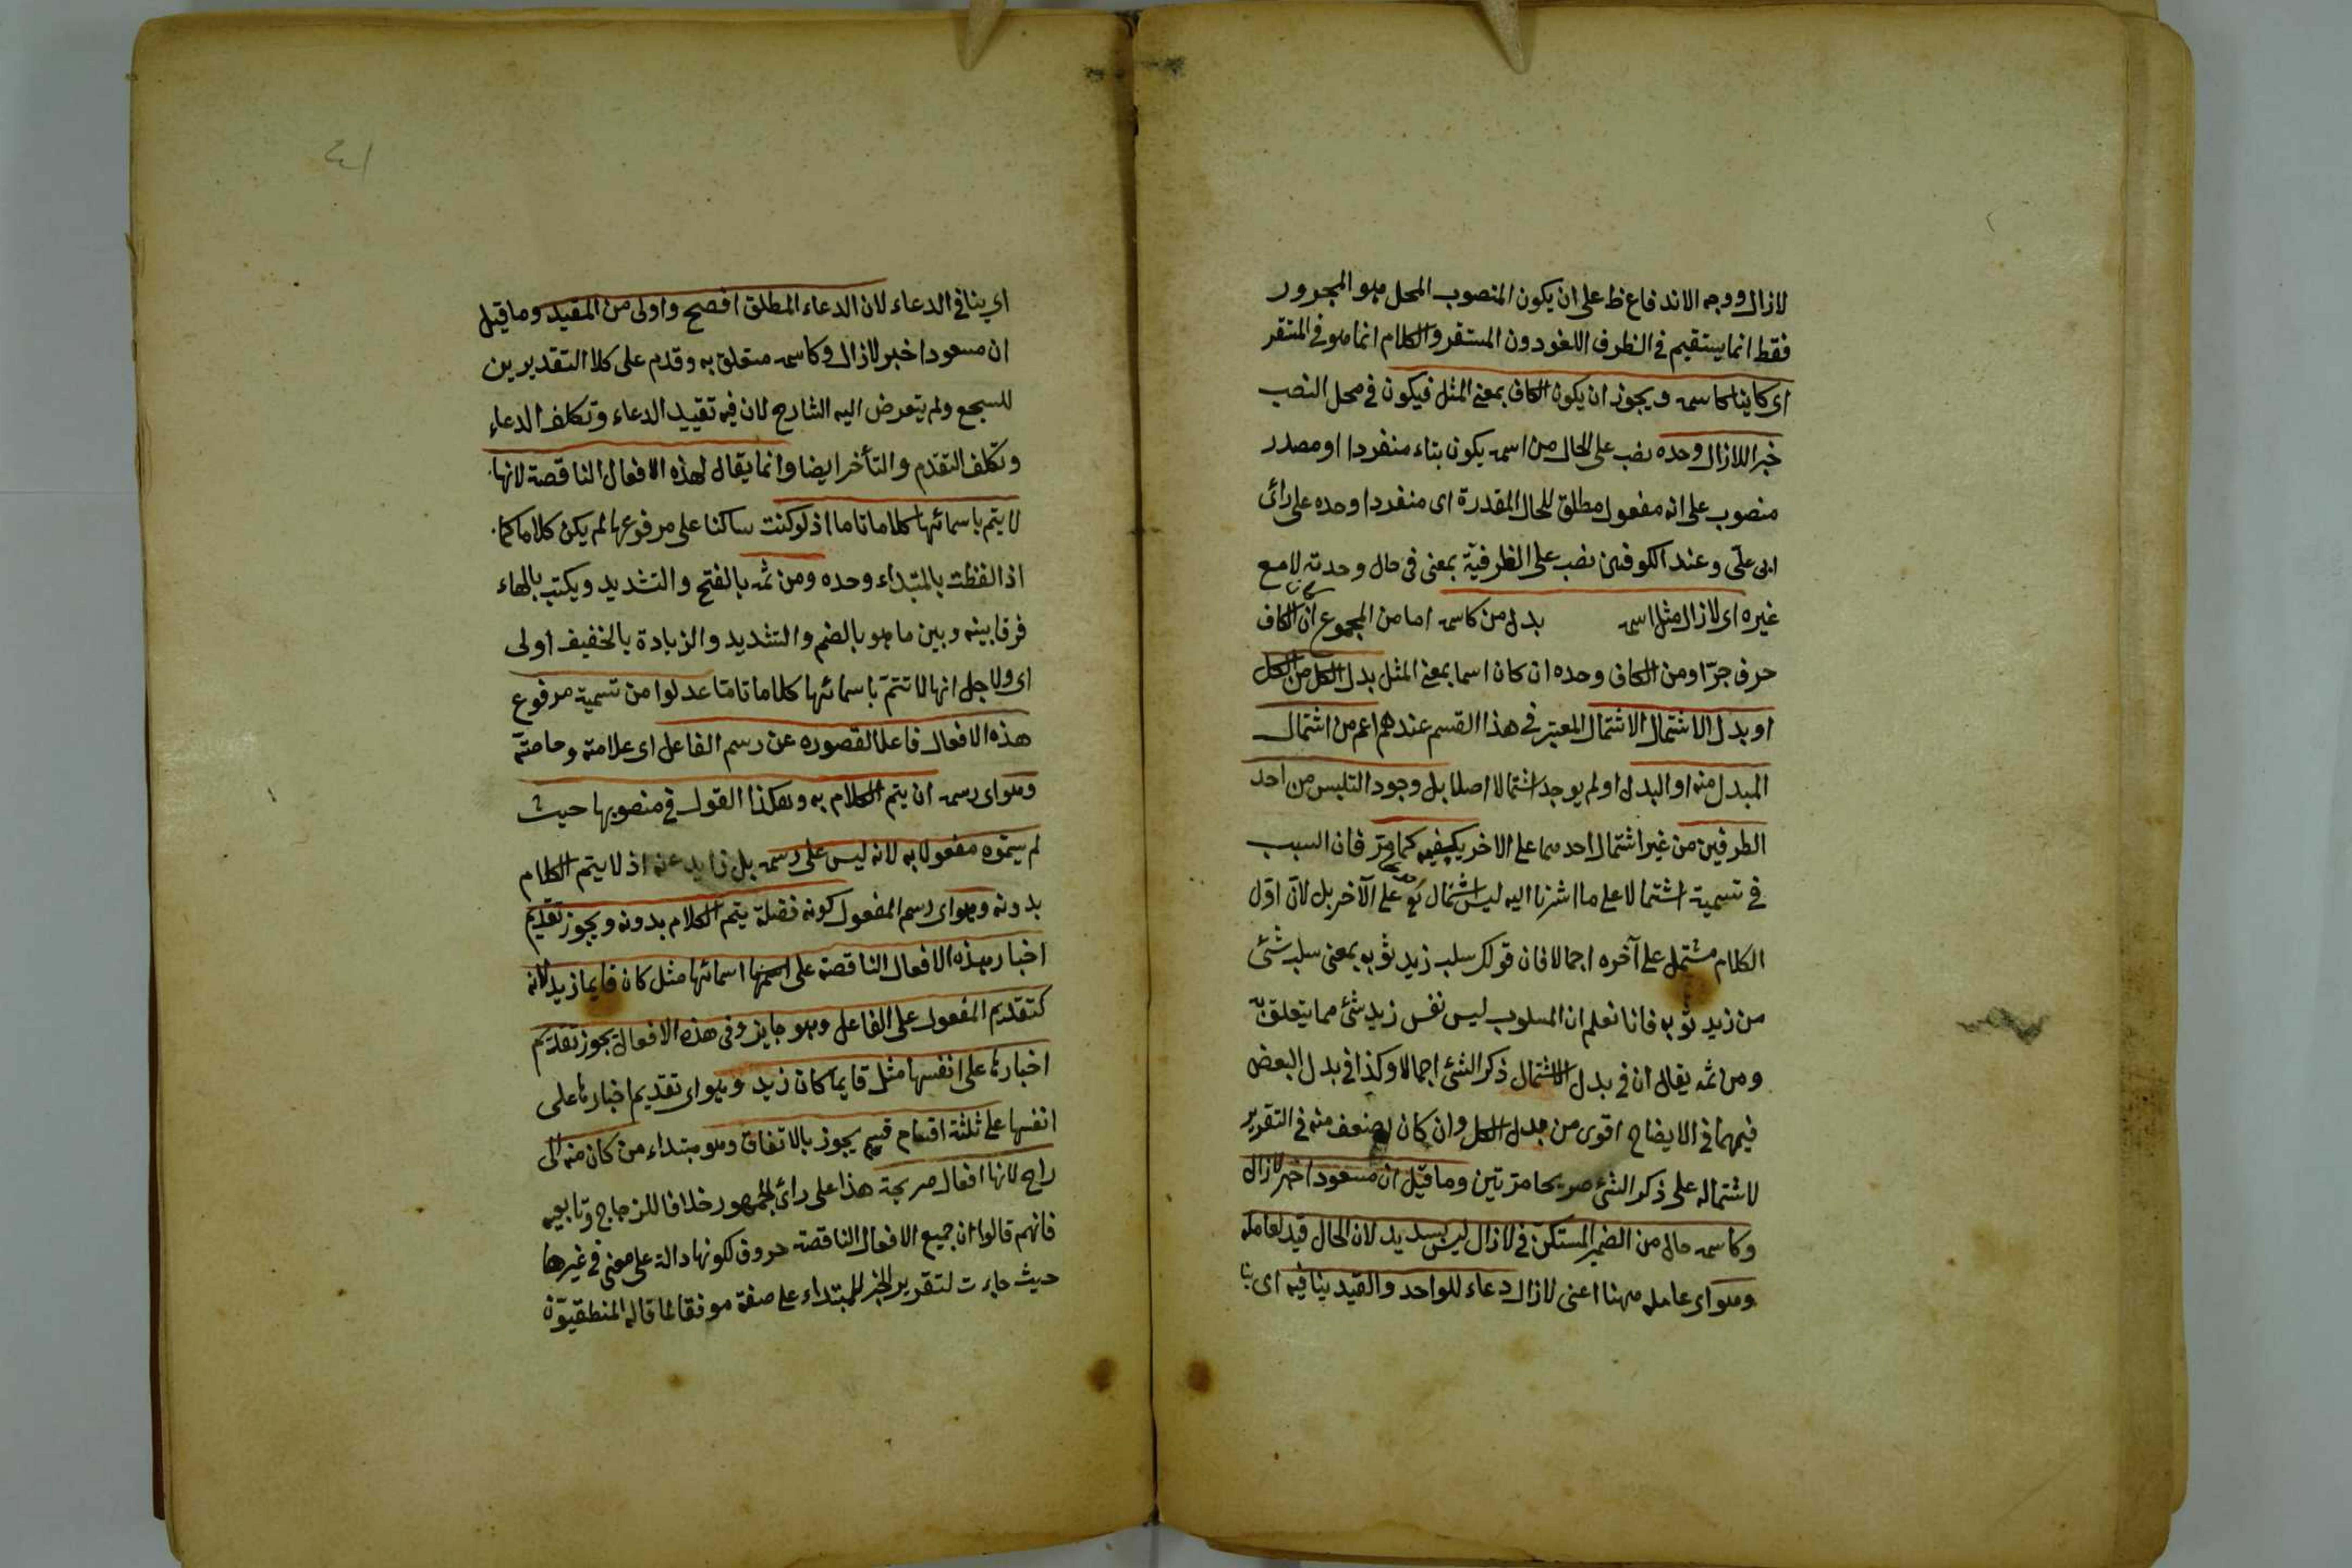 لازال ووجه الاندفاع ظ على ان يكون المنصوب المحل هو المجرور
فقط انما يستقيم في الظرف اللغو دون المستقر والكلام انما هو في المتقر
اى كاينا كاسمه ويجوز ان يكون الكاف بمعنى المثل فيكون في محل النصب
خبرا للازال وحده نصب على الحال من اسمه يكون بتاء منفردا او مصدر
منصوب على انه مفعول مطلق للحال المقدرة اى منفردا وحده على رائ
ابى على وعند الكوفين نصب على الظرفية بمعنى في حال وحدته لا مع
غيره اى لازال مثل اسمه بدل من كاسمه اما من المجموع ان كان الكاف
حرف جرّ او من الكاف وحده ان كان اسما بمعنى المثل بدل الكل من الكل
او بدل الاشتمال الاشتمال المعتبر في هذا القسم عندهم اعم من اشتمال
المبدل منه او البدل او لم يوجد اشتمالا اصلا بل وجود التلبس من احد
الطرفين من غير اشتمال احدهما على الاخر يكفيه كما مرّ فان السبب
في تسمية اشتمالا على ما اشرنا اليه ليس اشتمال على الآخر بل لان اوّل
الكلام مشتمل على آخره اجمالا فان قولك سلب زيد ثوبه بمعنى سلب شئ
من زيد ثوبه فانا نعلم ان المسلوب ليس نفس زيد شئ مما يتعلق به
ومن ثمه يقال ان في بدل الاشتمال ذكر الشئ اجمالا وكذا في بدل البعض
فيهما في الايضاح اقوى من بدل الكل وان كان اضعف منه في التقرير
لاشتماله على ذكر الشئ صريحا مرّتين وما قيل ان مسعودا خبر لازال
وكاسمه حال من الضمير المستكن في لازال ليس بسديد لان الحال قيد لعامله
وهو اى عامله ههنا اعنى لازال دعاء للواحد والقيد ينافيه اى ينا
٤١
اى ينافي الدعاء لان الدعاء المطلق افصح واولى من المقيد وما قيل
ان مسعودا خبر لازال وكاسمه متعلق به وقدم على كلا التقديرين
للسجع ولم يتعرض اليه الشارح لان فيه تقييد الدعاء وتكلف الدعاء
وتكلف التقدم والتأخر ايضا وانما يقال لهذه الافعال الناقصة لانها
لا يتم باسمائها كلاما تاما اذ لو كنت ساكنا على مرفوعها لم يكن كلاما كما
اذا لفظت بالمبتداء وحده ومن ثمه بالفتح والتشديد ويكتب بالهاء
فرقا بينه وبين ما هو بالضم والتشديد والزيادة بالخفيف اولى
اى ولاجل انها لا تتمّ باسمائها كلاما تامّا عدلوا من تسمية مرفوع
هذه الافعال فاعلا لقصوره عن رسم الفاعل اى علامته وخاصته
وهو اى رسمه ان يتم الكلام به وهكذا القول في منصوبها حيث
لم يسمّوه مفعولا به لانه ليس على رسمه بل زايد عنه اذ لا يتم الكلام
بدونه وهو اى رسم المفعول كونه فضلة يتم الكلام بدونه ويجوز تقديم
اخبار هذه الافعال الناقصة على اسمائها مثل كان قايما زيد لانه
كتقديم المفعول على الفاعل وهو جايز وفى هذه الافعال يجوز تقديم
اخبارها على انفسها مثل قايما كان زيد وهو اى تقديم اخبارها على
انفسها على ثلثة اقسام قسم يجوز بالاتفاق وهو مبتداء من كان منه الى
راح لانها افعال صريحة هذا على رائ الجمهور خلافا للزجاج وتابعيه
فانهم قالوا ان جميع الافعال الناقصة حروف لكونها دالة على معنى في غيرها
حيث جاءت لتقرير الخبر للمبتداء على صفة موفقا لما قاله المنطقيون